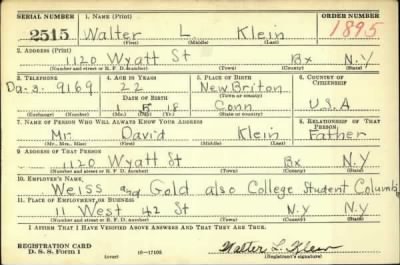 SERIAL NUMBER 1. NAME (Print) ORDER NUMBER
2515 Walter L. Klein 1895
(First) (Middle) (Last)
2. ADDRESS (Print)
1120 Wyatt St Bx N.Y
(Number and street or R. F. D. number) (Town) (County) (State)
3. TELEPHONE 4. AGE IN YEARS 5. PLACE OF BIRTH 6. COUNTRY OF CITIZENSHIP
Da-3. 9169 22 New Briton
DATE OF BIRTH (Town or county)
5 18 Conn U.S.A
(Exchange) (Number) (Mo.) (Day) (Yr.) (State or country)
7. NAME OF PERSON WHO WILL ALWAYS KNOW YOUR ADDRESS 8. RELATIONSHIP OF THAT PERSON
Mr. David Klein Father
(Mr., Mrs., Miss) (First) (Middle) (Last)
9. ADDRESS OF THAT PERSON
1120 Wyatt St Bx N.Y
(Number and street or R. F. D. number) (Town) (County) (State)
10. EMPLOYER'S NAME
Weiss and Gold also College Student Columb
11. PLACE OF EMPLOYMENT OR BUSINESS
11 West 42 St N.Y N.Y
(Number and street or R. F. D. number) (Town) (County) (State)
I AFFIRM THAT I HAVE VERIFIED ABOVE ANSWERS AND THAT THEY ARE TRUE.
REGISTRATION CARD
D. S. S. Form 1 (over) 16—17105 Walter L. Klein
(Registrant's signature)